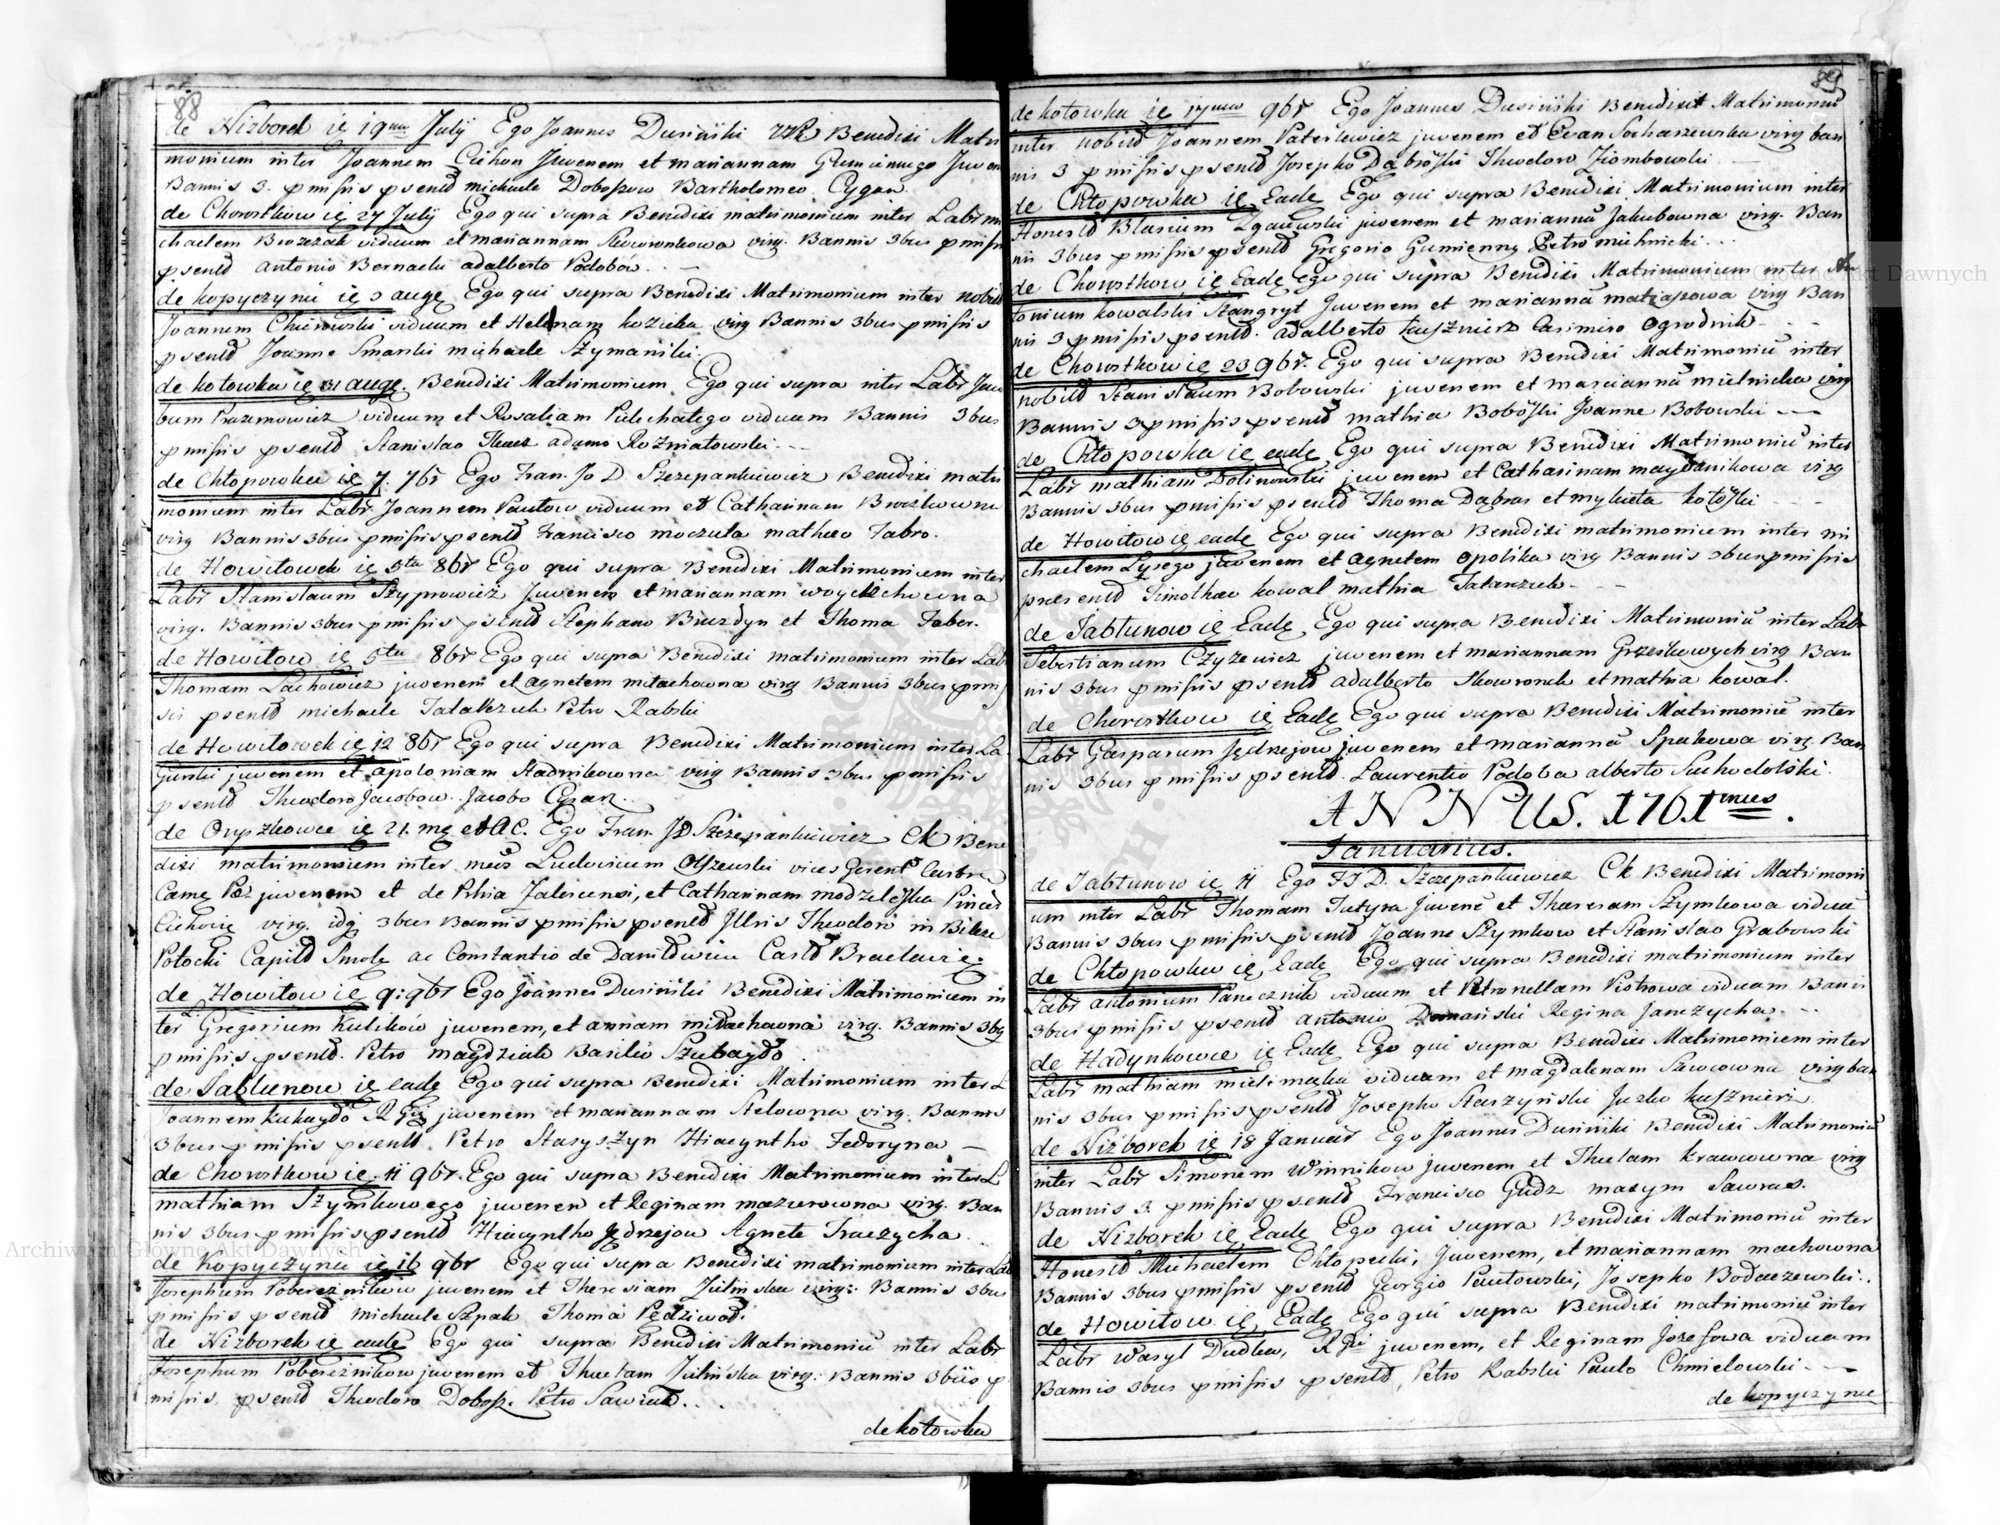 88
de Nizborek ię 19na July Ego Joannes Dusiński VVR Benedixi Matri
monium inter Joannem Cichon Juvenem et mariannam Gumiennego Juven
Bannis 3. pmissis psentd michaele Doboszow Bartholomeo Cygan.
de Chorostkow ię 27 July Ego qui supra Benedixi matrimonium inter Labr mi
chaelem Brozezak viduum et mariannam Skowronkowa virg. Bannis 3bus pmissis
psentd Antonio Bernacki adalberto Podobów.
de kopyczynie ię 3 augę Ego qui supra Benedixi Matrimonium inter nobild
Joannem viduum et Helenam kozicka virg Bannis 3bus pmissis
psentd Joanne Smarski michaele Szymanski.
de kotowka ię 31 augę. Benedixi Matrimonium Ego qui supra inter Labr Jaco
bum viduum et Rosaliam Pulchatego viduam Bannis 3bus
pmissis psentd Stanislao Tkacz adamo Rozniatowski.
de Chłopowka ię 7. 7br Ego Fran. Jo D Szczepankiewicz Benedixi matri
monium inter Labr Joannem Pautow viduum et Catharinam Burzkowna
virg Bannis 3bus pmissis psentd Francisco moczuta matheo Fabro.
de Howilowek ię 5ta 8br Ego qui supra Benedixi Matrimonium inter
Labr Stanislaum Szyprowicz Juvenem et mariannam woyciechowna
virg. Bannis 3bus pmissis psentd Stephano Burdyn et Thoma Faber.
de Howilow ię 5ta 8br Ego qui supra Benedixi matrimonium inter Lab
Thomam Lachowicz juvenem et agnetem mitachowna virg Bannis 3bus pmis
sis psentd michaele Tatakzuk Petro Rabski
de Howilowek ię 12 8br Ego qui supra Benedixi Matrimonium inter La
Gurski juvenem et apoloniam Stadnikowna virg Bannis 3bus pmissis
psentd Theodoro Jacobow. Jacobo Cygan.
de Oryszkowce ię 21. mę et A C. Ego Fran. JD Szczepankiewicz Ck Bene
dixi matrimonium inter Ludovicum Olszewski vices Gerent
juvenem et de Phia et Catharinam
virg. 3bus Bannis pmissis psentd Illris Theodori in
Potocki ac Constantio de
de Howilow ię 9: 9br Ego Joannes Dusiński Benedixi Matrimonium in
ter Gregorium Kulikow juvenem, et annam mitachowna virg. Bannis 3bq
pmissis psentd. Petro magdziak Basilio
de Jablunow ię eadę Ego qui supra Benedixi Matrimonium inter L
Joannem juvenem et mariannam Stelowna virg. Bannis
3bus pmissis psentd. Petro Stasyszyn Hiacyntho Fedoryna
de Chorostkow ię 11 9br. Ego qui supra Benedixi Matrimonium inter L
mathiam Szymkowego juvenem et Reginam mazurowna virg. Ban
nis 3bus pmissis psentd Hiacyntho Jędrzejow Agnete Traczycha
de Kopyczynie ię 16 9br Ego qui supra Benedixi matrimonium inter Lab
Josephum Pobereznikow juvenem et Theresiam Zulinska virg: Bannis 3bus
pmissis psentd michaele Szpak Thoma Pędziwod.
de Nizborek ię eadę Ego qui supra Benedixi Matrimoniu inter Labr.
Josephum Pobereznikow juvenem et Theclam Zulinska virg. Bannis 3bus p
missis psentd Theodoro Dobosz. Petro Sawiuk.
de kotowka
89
de kotowka ię 17ma 9br Ego Joannes Dusiński Benedixit Matrimoniu
inter nobild Joannem Paterkiewicz juvenem et Evam Sochaszewska virg ban
nis 3 pmissis psentd Josepho Dąbroski Theodoro Ziombowski
de Chłopowka ię Eadę Ego qui supra Benedixi Matrimonium inter
Honestd Blasium juvenem et mariannā Jakubowna virg. Ban
nis 3bus pmissis psentd Gregorio Gumienny Petro michnicki.
de Chorostkow ię Eadę Ego qui supra Benedixi Matrimonium inter An
tonium kowalski Juvenem et mariannā virg Ban
nis 3 pmissis psentd. adalberto kusznierz Casimiro Ogrodnik
de Chorostkow ię 23 9br. Ego qui supra Benedixi Matrimoniū inter
nobild Stanislaum Bobowski juvenem et mariannā mielnicka virg
Bannis 3 pmissis psentd mathia Boboski Joanne Bobowski
de Chłopowka ię eadę Ego qui supra Benedixi Matrimoniū inter
Labr mathiam Dolinowski juvenem et Catharinam maydanikowa virg
Bannis 3bus pmissis psentd Thoma Dąbras et mykieta kotoski
de Howilow ię eadę Ego qui supra Benedixi matrimonium inter mi
chaelem Lysego juvenem et agnetem Opolska virg Bannis 3bus pmissis
presentd Timotheo kowal mathia Tatarzuk
de Jabłunow ię Eadę Ego qui supra Benedixi Matrimoniū inter Labr
Sebstianum Czyzewicz juvenem et mariannam Grzeskowych virg Ban
nis 3bus pmissis psentd adalberto Skowronek et mathia kowal.
de Chorostkow ię Eadę Ego qui supra Benedixi Matrimoniū inter
Labr Gasparum Jędrzejow juvenem et mariannā Spakowa virg. Ban
nis 3bus pmissis psentd. Laurentio Podoba alberto Suchodolski.
ANNUS. 1761mus.
Januarius.
de Jabłunow ię 11 Ego FJD. Szczepankiewicz Ck Benedixi Matrimoni
um inter Labr Thomam Tutyra Juvenē et Theresam Szymkowa viduā
Bannis 3bus pmissis psentd Joanne Szymkow et Stanislao Grabowski
de Chłopowka ię Eadę Ego qui supra Benedixi matrimonium inter
Labr antonium Panecznik viduum et Petronellam Piotrowa viduam Banni
3bus pmissis psentd antonio Domański Regina Janczycha.
de Hadynkowce ię Eadę Ego qui supra Benedixi Matrimonium inter
Labr mathiam viduum et magdalenam Sawcowna virg ban
nis 3bus pmissis psentd Josepho Staszyński Juzko kusznierz
de Nizborek ię 18 Januar Ego Joannes Dusiński Benedixi Matrimoniū
inter Labr Simonem Winnikow juvenem et Theclam krawcowna virg
Bannis 3. pmissis psentd Francisco Gudz maxym Sawras.
de Nizborek ię Eadę Ego qui supra Benedixi Matrimoniū inter
Honestd Michaelem Chłopecki, Juvenem, et mariannam machowna
Bannis 3bus pmissis psentd Georgio Pautowski, Josepho Bodaczewski.
de Howilow. ię Eadę Ego qui supra Benedixi matrimoniū inter
Labr wasyl Dudka, juvenem, et Reginam Jozefowa viduam
Bannis 3bus pmissis psentd, Petro Rabski Paulo Chmielowski
de kopyczynie
Archiwum Główne Akt Dawnych